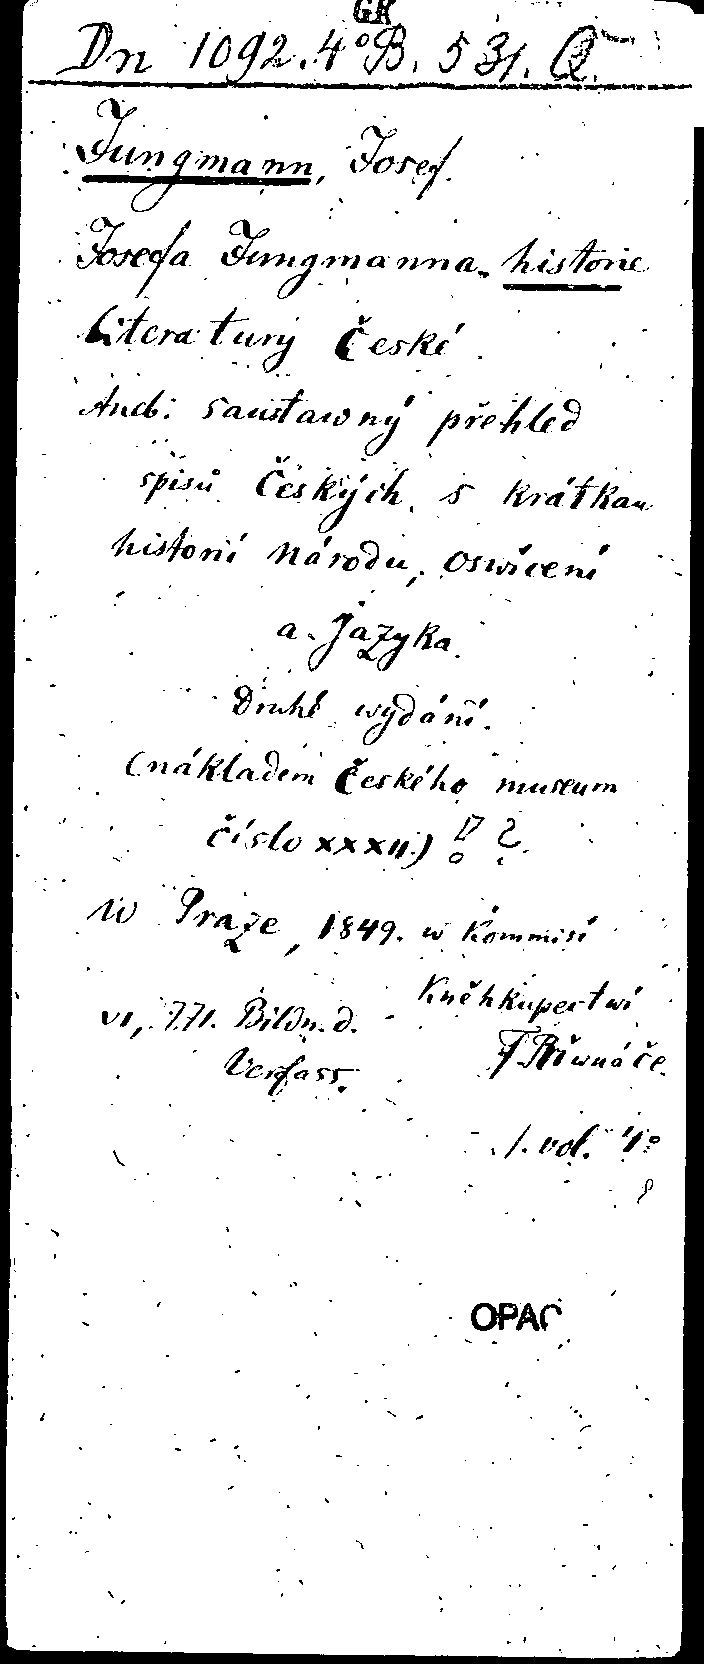 GK
Dn 1092. 4° B. 531. Q.
Jungmann, Josef.
Josefa Jungmanna historie
Literatury České.
Aneb: saustawný přehled
spisů Českých, s krátkau
historií národu, oswícení
a jazyka.
Druhé wydání.
(nákladem Českého museum
číslo XXXII.) !? ?
W Praze, 1849. w Kommisí
Kněhkupectwí
VI, 771. Bildn. d.
F. Řiwnáče.
Verfass.
1. vol. 4°
OPAC